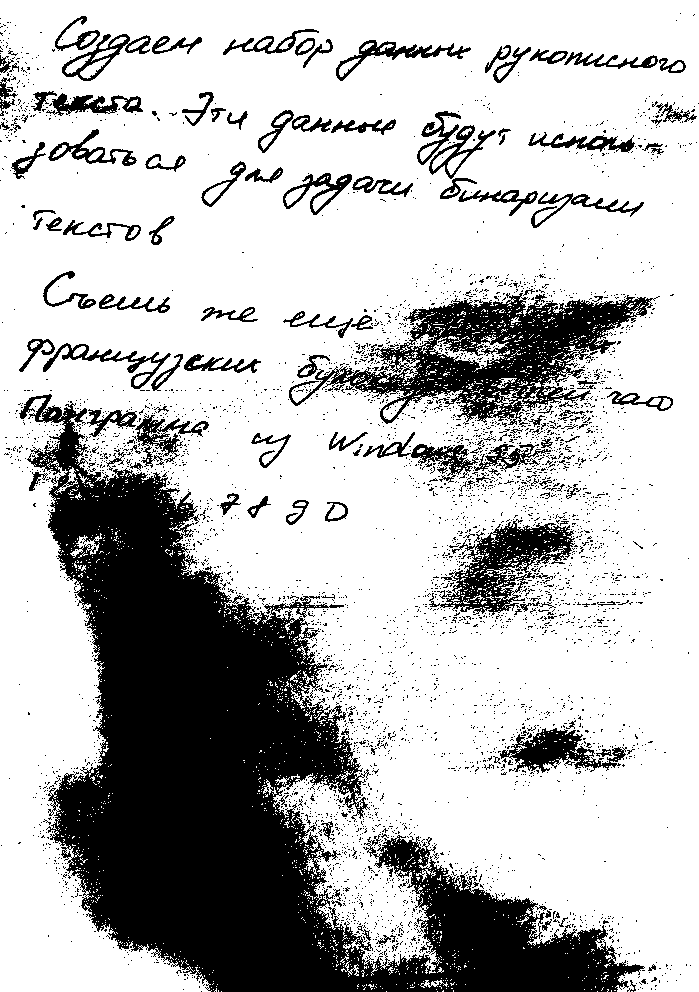 Создаем набор данных рукописного
текста. Эти данные будут исполь-
зоваться для задачи бинаризации
текстов
Съешь же ещё
французских булок чаю
Панграмма из Windows 95
7 8 9 0